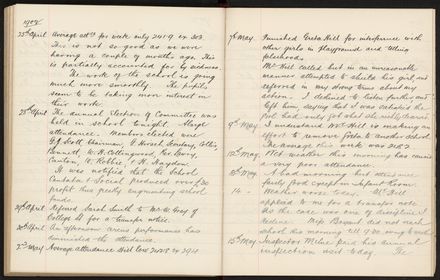 1908
22nd April Average att'd for week only 241.9 ex 303
This is not so good as we were
having a couple of months ago. This
is partially accounted for by sickness
The work of the school is going
much more smoothly. The pupils
seem to be taking more interest in
their work.
28th April The annual Election of Committee was
held in school tonight. Large
attendance. Members elected were
G.J. Scott Chairman, J. Hirsch Secretary, Collins,
Bennett, W.H. Collingwood,
H. Hayden
It was notified that the School
Cantata & Social produced over £30
profit thus greatly augmenting school
funds
29th April Refused Sarah Smith to
College St for a transfer
30th April An afternoon circus performance has
diminished the attendance.
2nd May Average attendance this week 242.8 ex 294
7th May Punished Greta Hill for interference with
other girls in Playground and telling
falsehoods
Mr Hill called but in an unreasonable
manner attempted to shield his girl, and
referred in very strong terms about my
action. I declined to listen further and
left him saying that I was satisfied the
girl had only got what she really deserved.
9th May I understand Mr Hill is making an
effort to remove Greta to another School
The average this week was 248.2
12th May Wet weather this morning has caused
a very poor attendance.
13th May A bad morning but attendance
fairly good except in infant room.
14 - Weather worse today. Mr Hill
applied to me for a transfer note
As the case was one of discipline I
refuse. Miss did not reach
school this morning till 9.20
15th May Inspector Milne paid his annual
inspection visit today. The